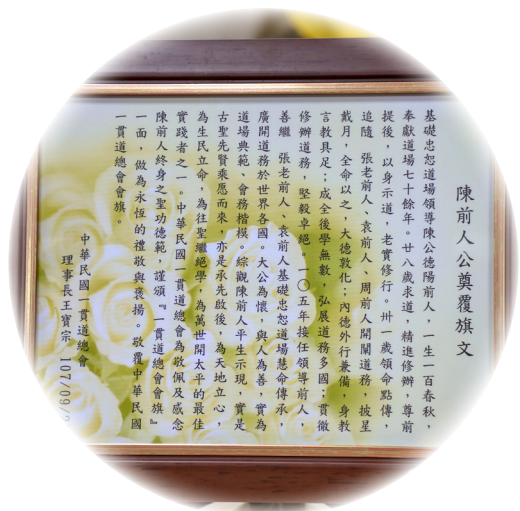 陳前人公奠覆旗文
基礎忠恕道場領導陳公德陽前人，一生一百春秋，
奉獻道場七十餘年。廿八歲求道，精進修辦，尊前
提後，以身示道，老實修行。卅一歲領命點傳，
追隨　張老前人、袁前人、周前人開闢道務，披星
戴月，全命以之，大德敦化；內德外行兼備，身教
言教具足；成全後學無數，弘展道務多國，貫徹
修辦道務，堅毅卓絕。一○五年接任領導前人，
善繼　張老前人、袁前人基礎忠恕道場慧命傳承，
廣開道務於世界各國。大公為懷，與人為善，實為
道場典範、會務楷模。綜觀陳前人平生示現，實是
古聖先賢乘愿而來，亦是承先啟後，為天地立心，
為生民立命，為往聖繼絕學，為萬世開太平的最佳
實踐者之一。中華民國一貫道總會為敬佩及感念
陳前人終身之聖功德範，謹頒『一貫道總會會旗』
一面，做為永恆的禮敬與褒揚。敬覆中華民國
一貫道總會會旗。
中華民國一貫道總會
理事長王寶宗 107/09/2